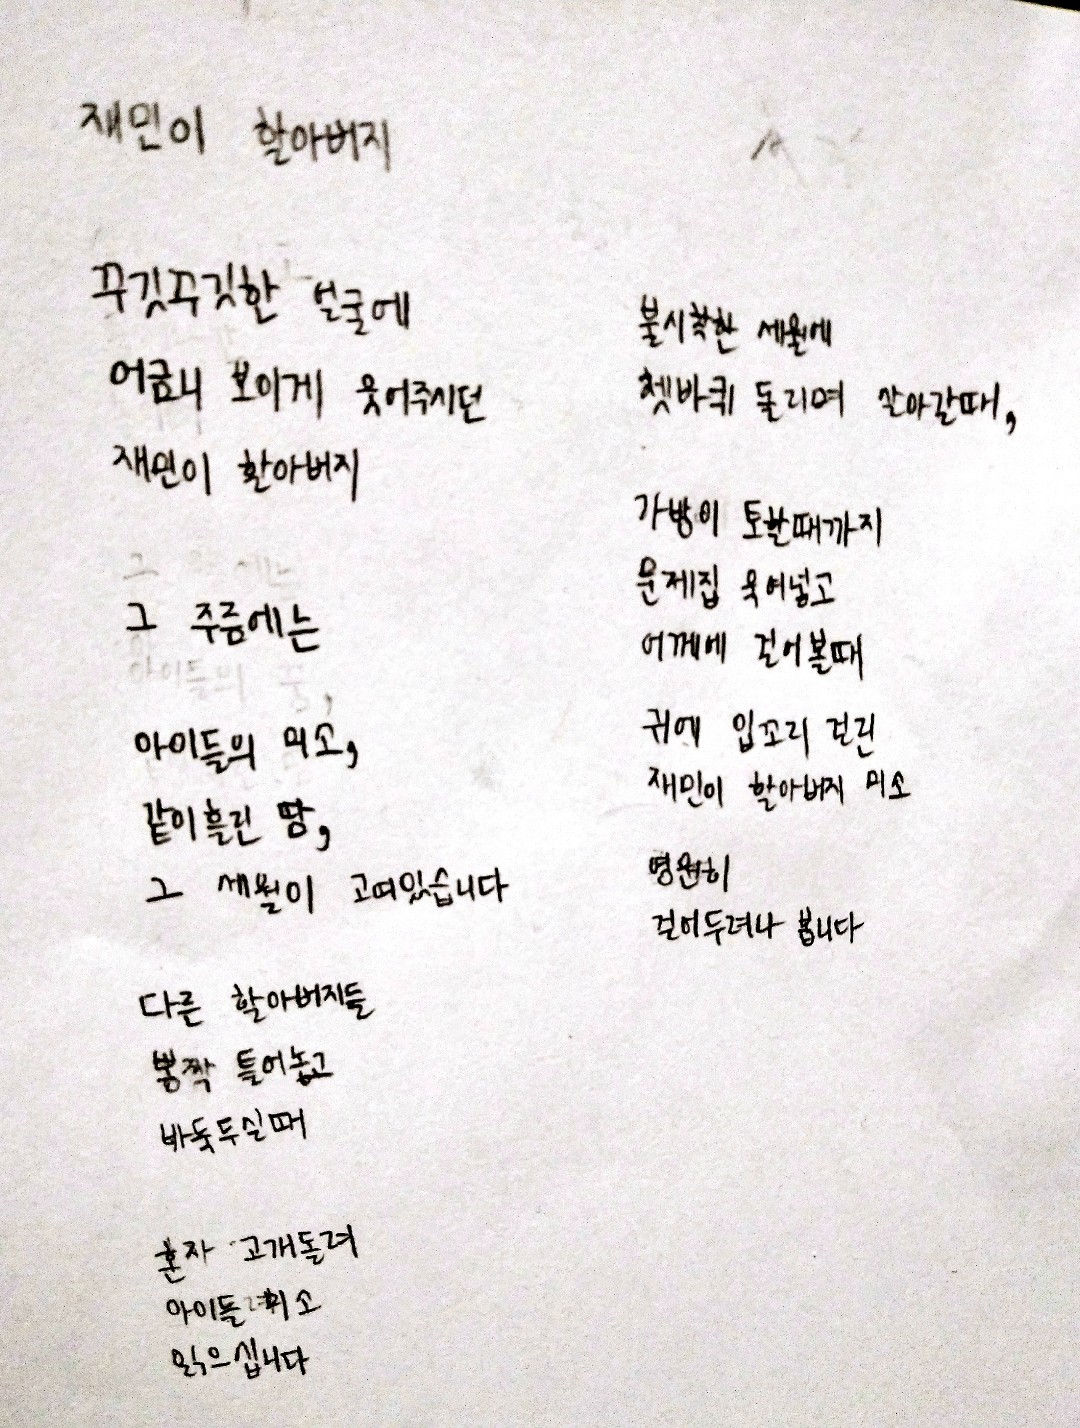 재민이 할아버지
꾸깃꾸깃한 얼굴에
어금니 보이게 웃어주시던
재민이 할아버지
그 주름에는
아이들의 미소,
같이흘린 땀,
그 세월이 고여있습니다
다른 할아버지들
뽕짝 틀어놓고
바둑두실때
혼자 고개돌려
아이들 미소
읽으십니다
불시착한 세월에
쳇바퀴 돌리며 살아갈때,
가방이 토할때까지
문제집 욱여넣고
어깨에 걸어볼때
귀에 입꼬리 걸린
재민이 할아버지 미소
영원히
걸어두려나 봅니다